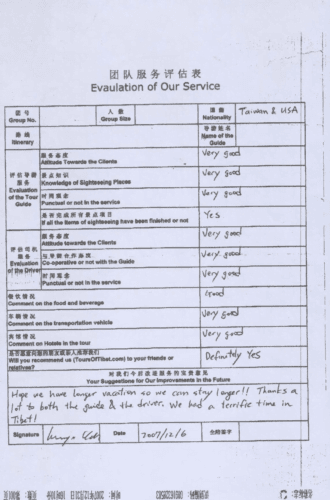 团队服务评估表
Evaulation of Our Service
团号 Group No. 人数 Group Size 国籍 Nationality Taiwan & USA
路线 Itinerary 导游姓名 Name of the Guide
评估导游服务 Evaluation of the Tour Guide
服务态度 Attitude Towards the Clients Very good
景点知识 Knowledge of Sightseeing Places Very good
时间观念 Punctual or not in the service Very good
是否完成所有景点项目 If all the items of sightseeing have been finished or not Yes
评估司机服务 Evaluation of the Driver
服务态度 Attitude towards the Clients Very good
与导游合作态度 Co-operative or not with the Guide Very good
时间观念 Punctual or not in the service Very good
餐饮情况 Comment on the food and beverage Good
车辆情况 Comment on the transportation vehicle Very good
宾馆情况 Comment on Hotels in the tour Very good
Will you recommend us (ToursOfTibet.com) to your friends or relatives? Definitely Yes
对我们今后改进服务的宝贵意见
Your Suggestions for Our Improvements in the Future
Hope we have longer vacation so we can stay longer!! Thanks a
lot to both the guide & the driver. We had a terrific time in
Tibet!
Signature Date 2007/12/6